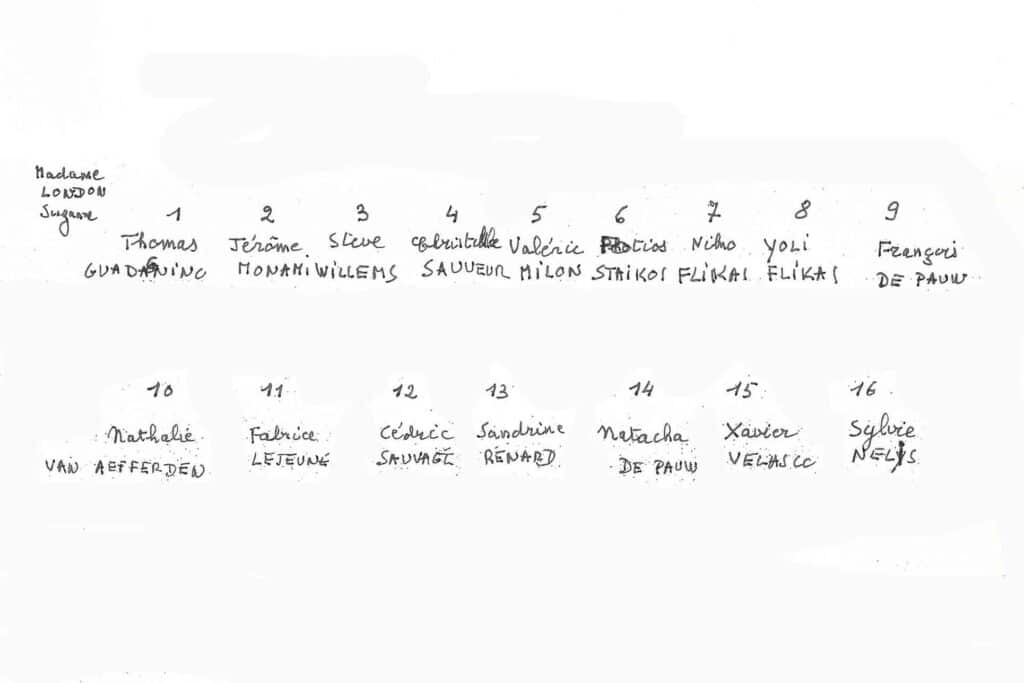 Madame
LONDON
Suzanne
1 2 3 4 5 6 7 8 9
Thomas Jérôme Steve Christelle Valérie Photios Niko YOLI François
GUADAGNINO MONAMI WILLEMS SAUVEUR MILON STAIKOS FLIKAS FLIKAS DE PAUW
10 11 12 13 14 15 16
Nathalie Fabrice Cédric Sandrine Natacha Xavier Sylvie
VAN AEFFERDEN LEJEUNE SAUVAGE RENARD DE PAUW VELASCO NELIS